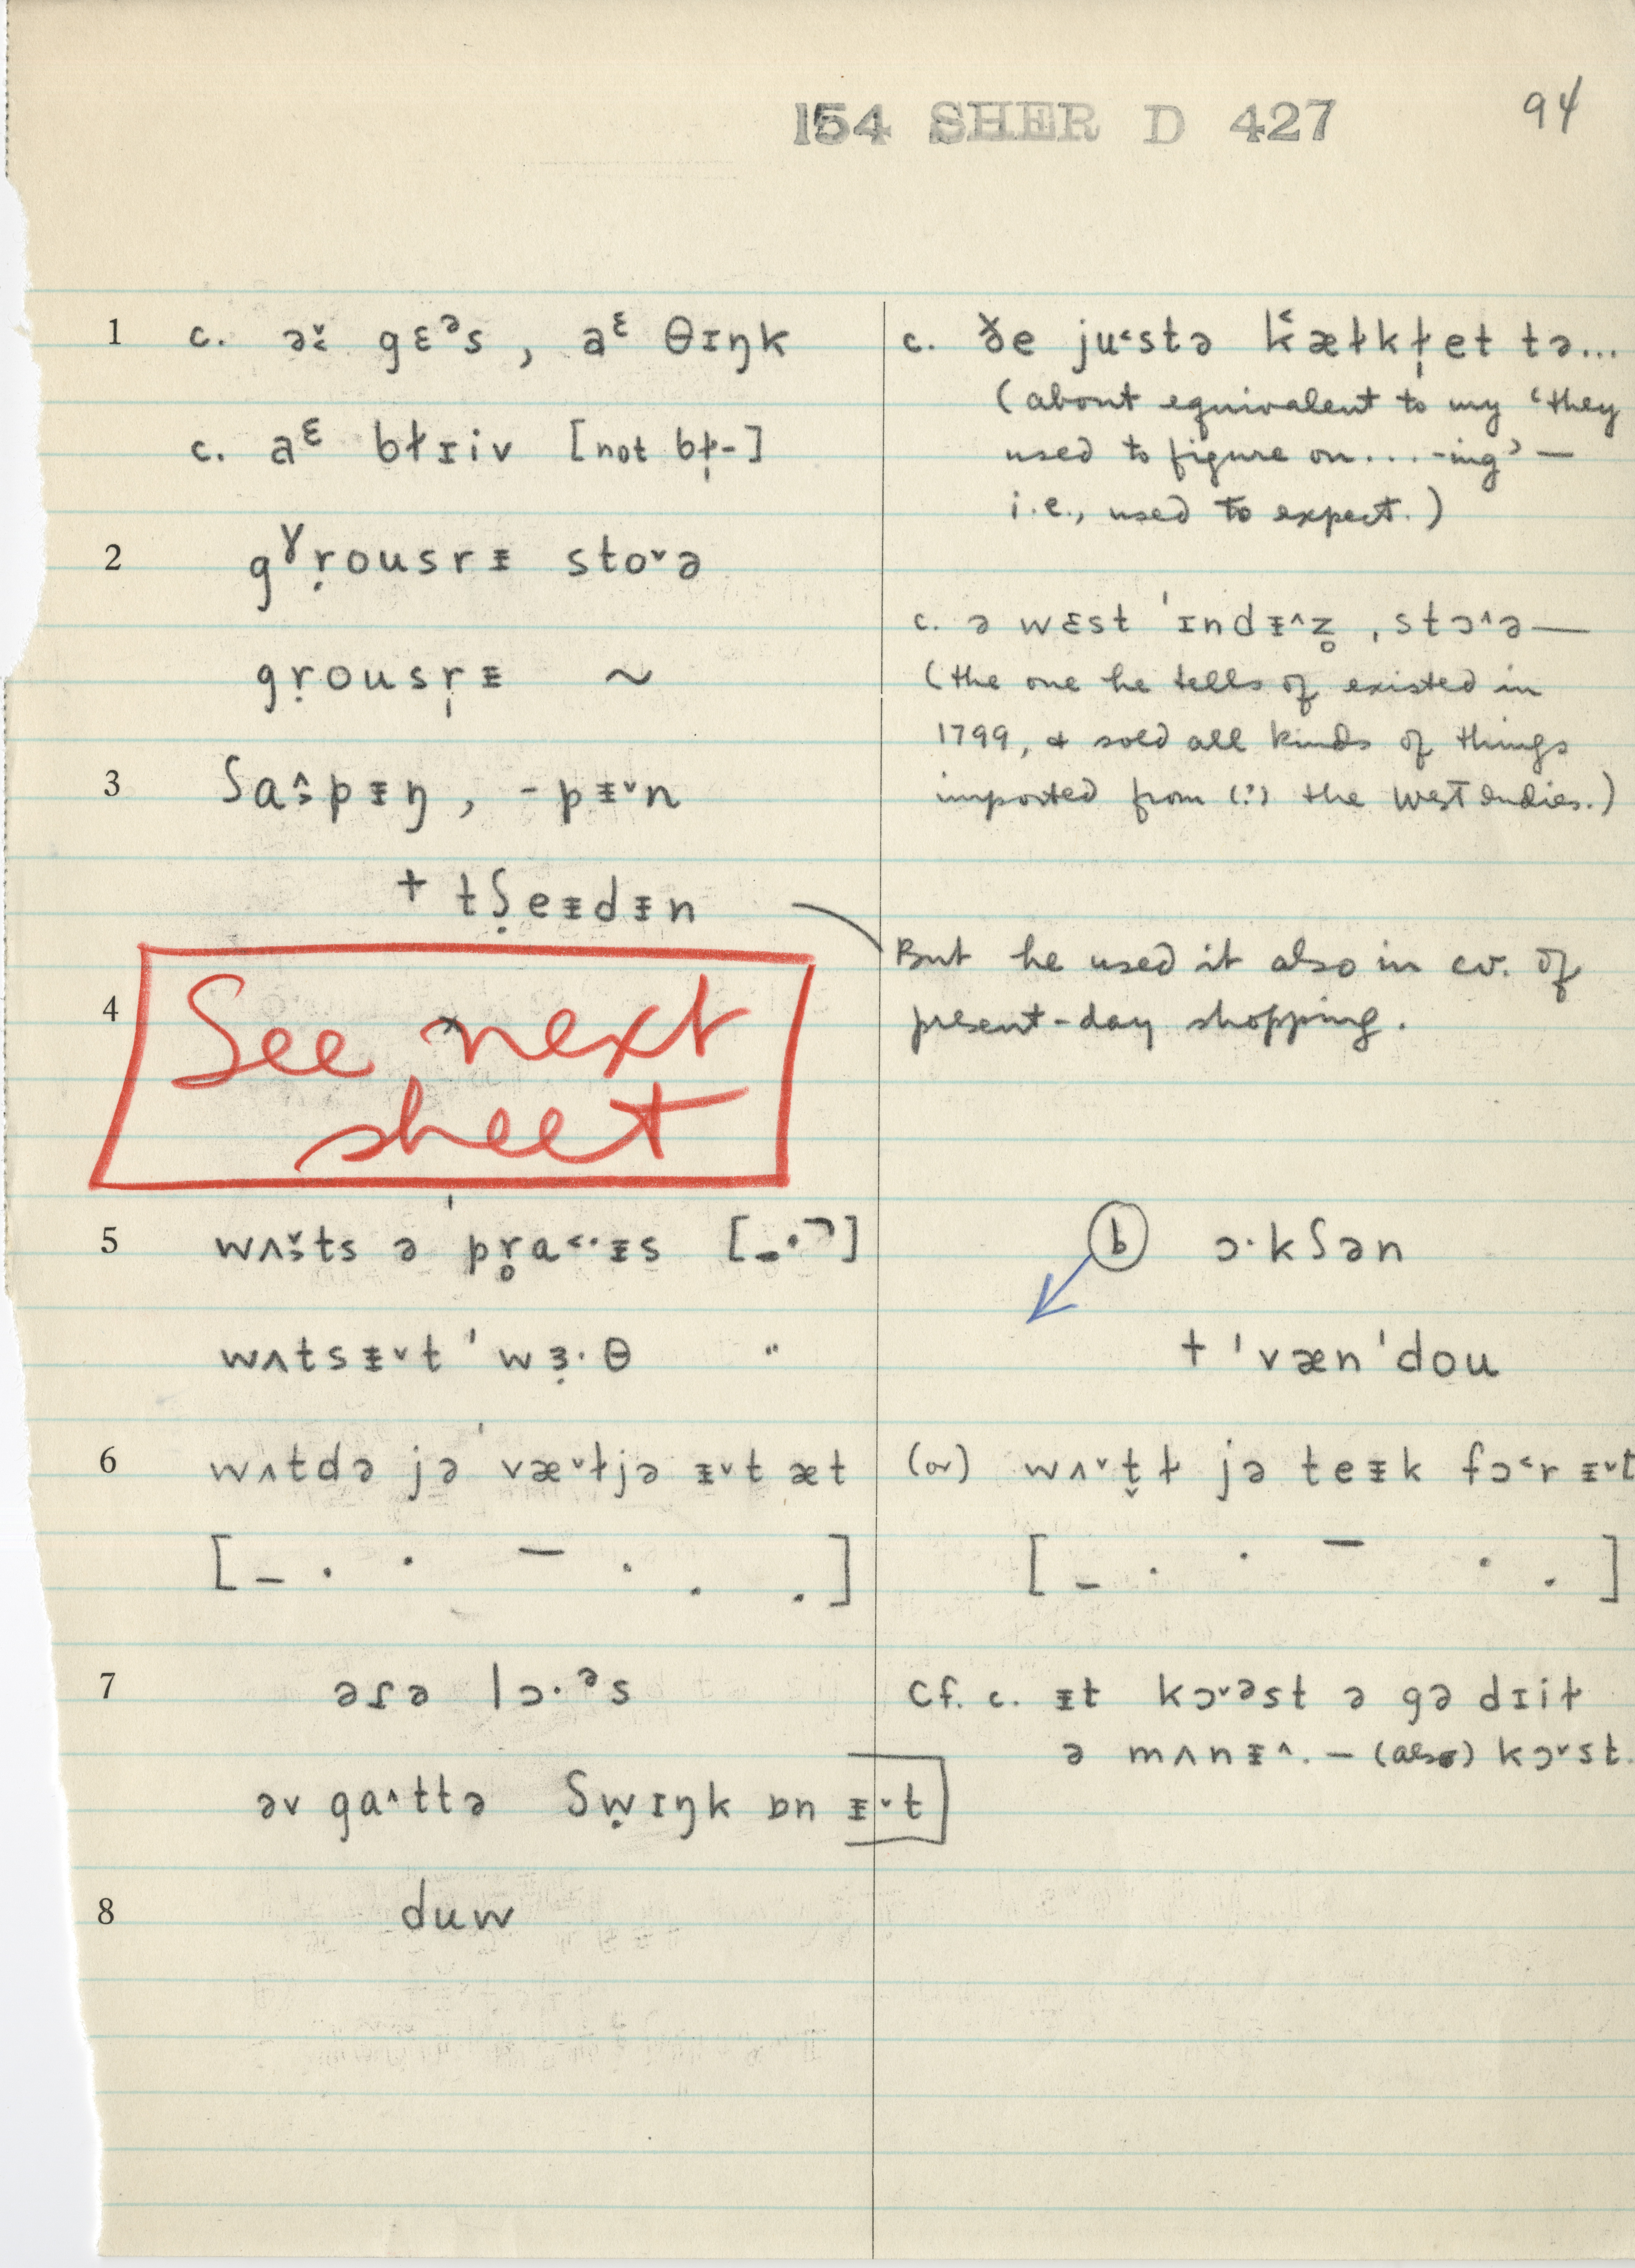 154 SHER D 427
94
1 c. əˇ˂ gɛᵊs , aᵋ θɪŋk
c. aᵋ bɫɪiv [not bɫ̩-]
2 gˠṛousrᵻ stoˇə
gṛousr̩ᵻ ~
3 ʃa˄˃pᵻŋ , -pᵻˇn
+ tʃ̣eᵻdᵻn
4 See next
sheet
5 wʌˇ˃ts ə ˈpr̥̣a˂·ᵻs [_.¬]
wʌtsᵻˇt ˈwɜ̣·θ "
6 wʌtdə jə ˈvæˇɫjə ᵻˇt æt
[ – · · – · . . ]
7 əɾə lɔ·ᵊs
əv ga˄ttə ʃẉɪŋk ɒn ᵻˇt
8 duw
c. ðe ju˂stə k˂æɫkɫ̩et tə...
(about equivalent to my 'they
used to figure on....-ing' —
i.e., used to expect.)
c. ə wɛst ˈɪndᵻ˄z̥ ˌstɔ˄ə—
(the one he tells of existed in
1799, + sold all kinds of things
imported from (?) the West Indies.)
But he used it also in cv. of
present-day shopping.
b ɔ·kʃən
+ ˈvænˈdou
(or) wʌˇt̬ɫ jə teᵻk fɔ˂r ᵻˇt
[ – · · – · . ]
Cf. c. ᵻt kɔˇᵊst ə gə dɪiɫ
ə mʌnᵻ˄. — (also) kɔˇst.